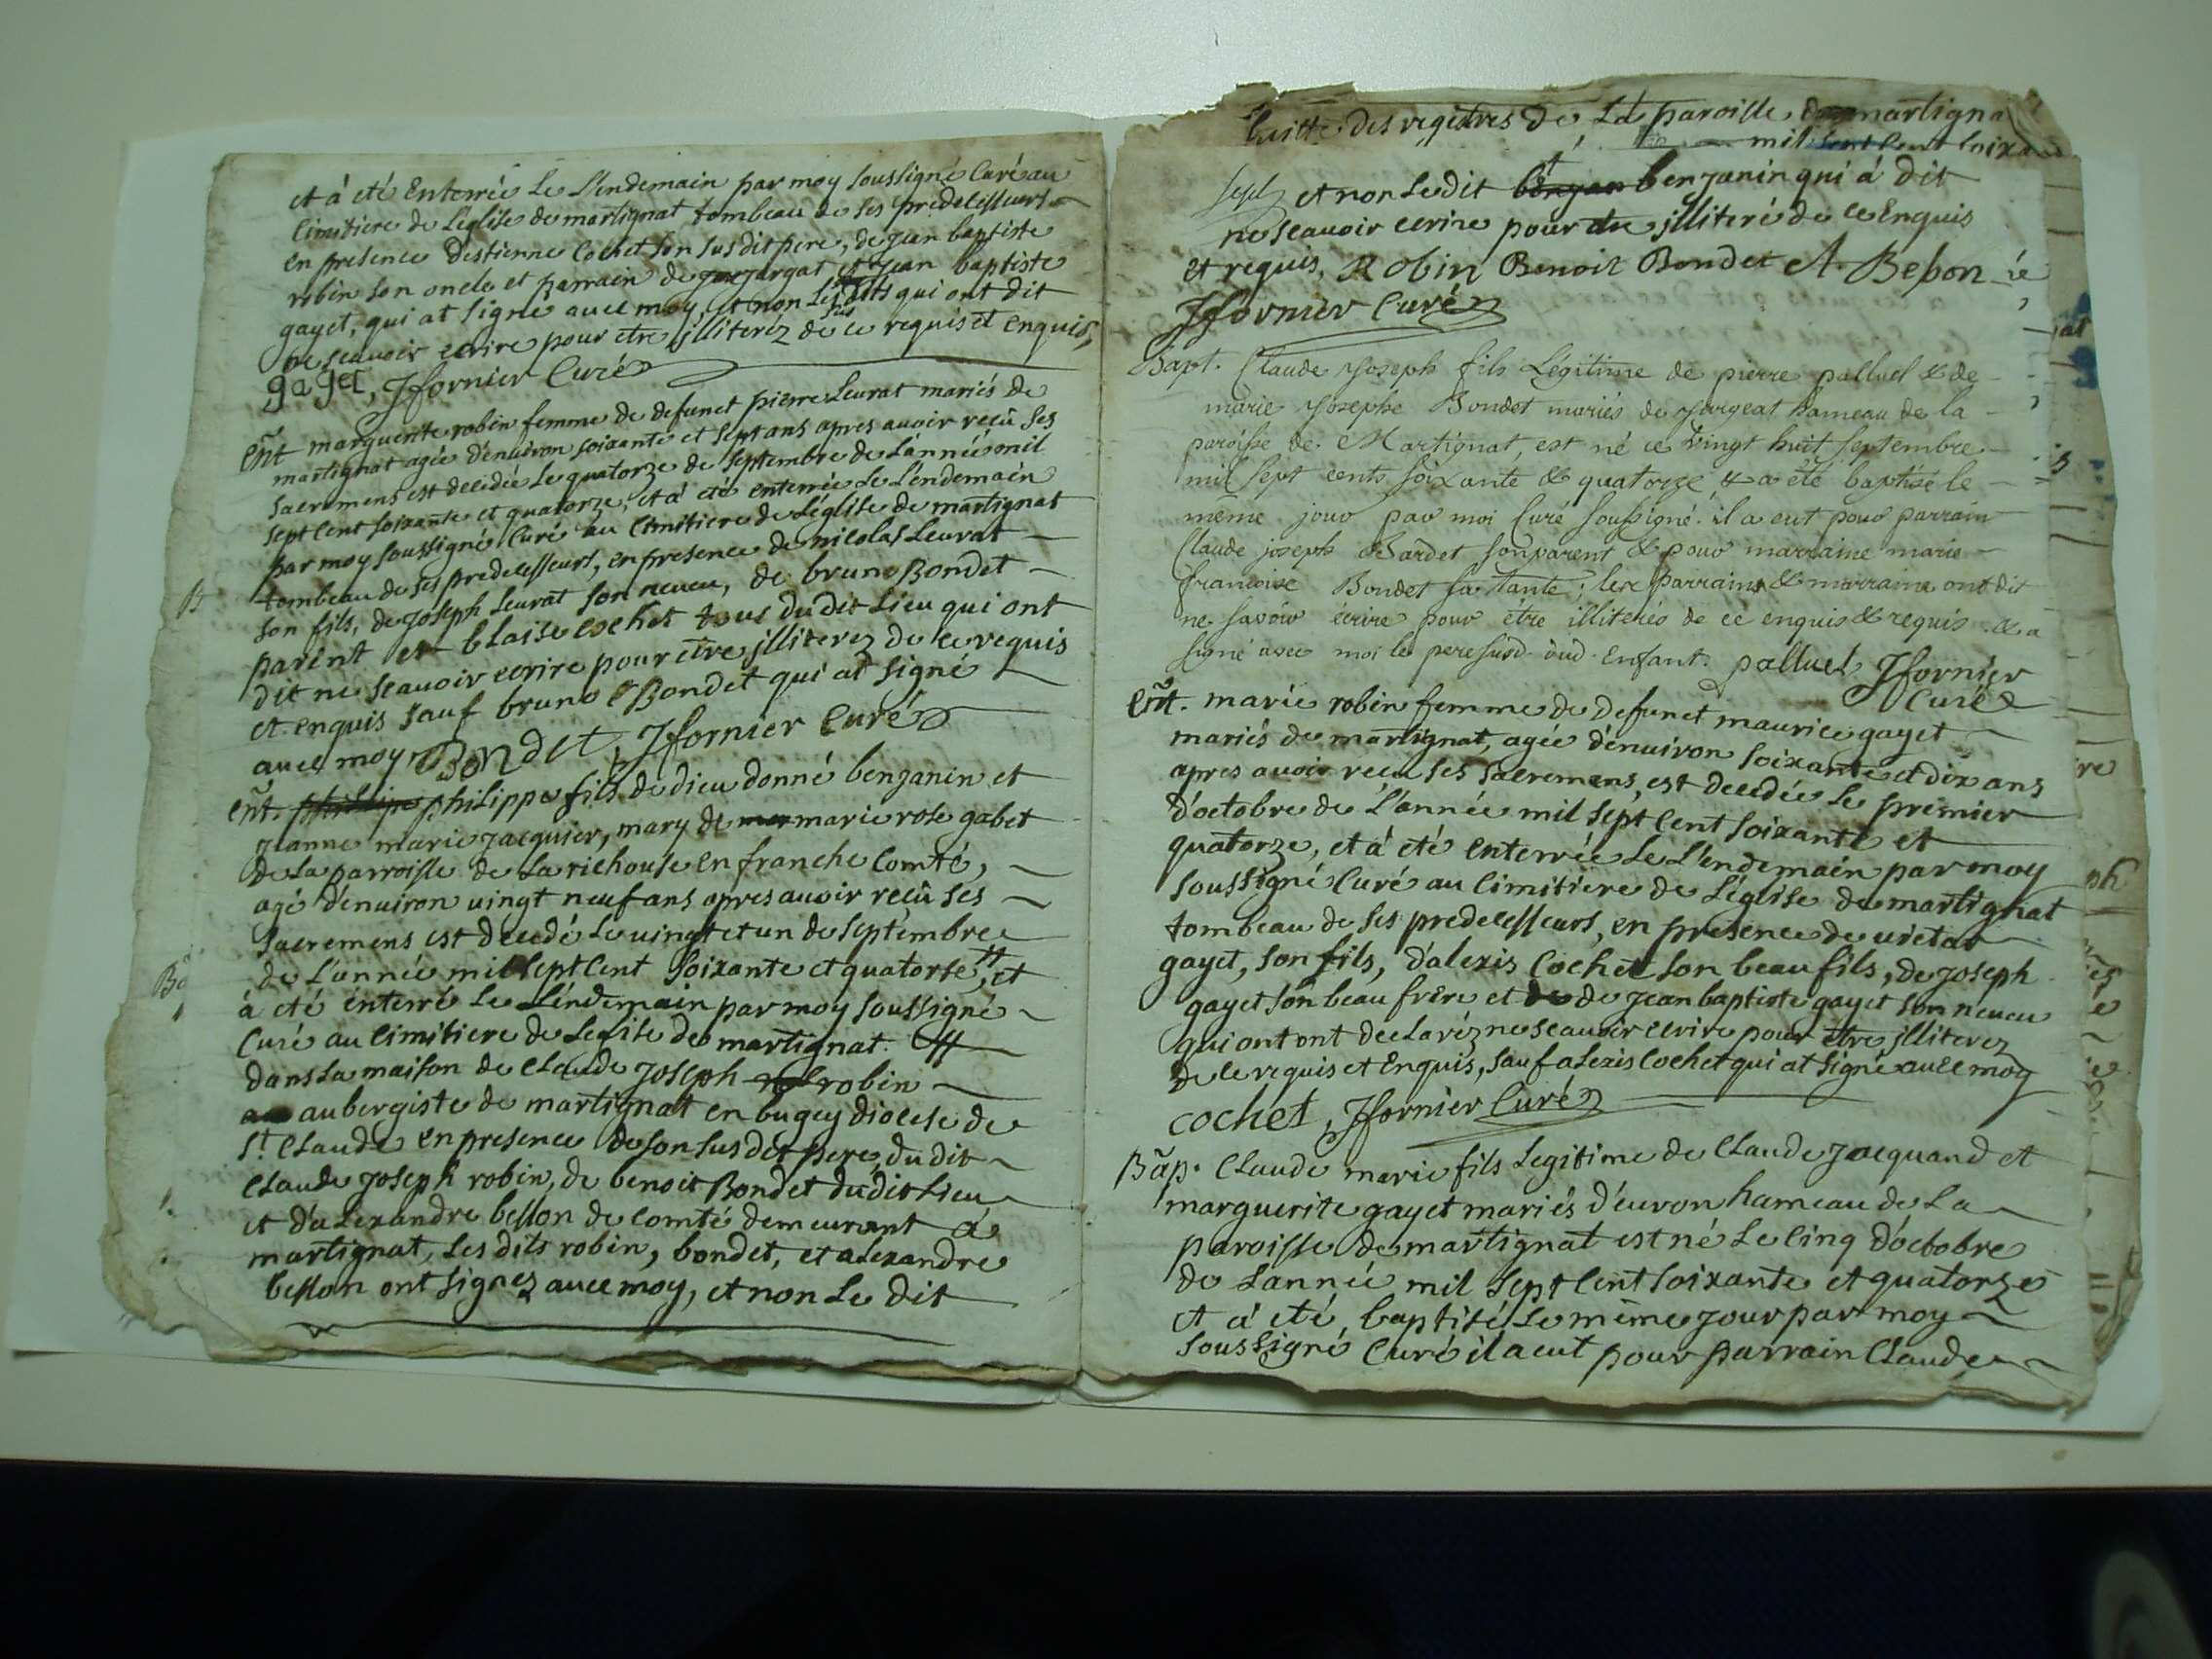 et à eté Enterrée Le L'endemain par moy soussigné Curé au
Cimitiere de L'eglise de martignat tombeau de ses predecesseurs
en presence destienne Cochet son susdit pere, de jean baptiste
robin son oncle et parrain de jargat, et jean baptiste
gayet, qui at signé avec moy, et non Les dits qui ont dit
ne sçauoir ecrire pour etre illiteréz de ce requis et enquis,
gajet, Jfornier Curé
Ent marguerite robin femme de defunct pierre Leurat mariés de
martignat agée d'enuiron soixante et sept ans apres auoir reçû ses
sacremens est decedée Le quatorze de septembre de L'année mil
sept Cent soixante et quatorze, et à eté enterrée Le L'endemain
par moy soussigné Curé au Cimitiere de L'église de martignat
tombeau de ses predecesseurs, en presence de nicolas Leurat
son fils, de joseph Leurat son neueu, de bruno Bondet
parent et blaise cochet tous dudit Lieu qui ont
dit ne sçauoir ecrire pour etre illiterez de ce requis
et enquis sauf bruno Bondet qui at signé
auec moy, Bondet, Jfornier Curé
Ent. philippe philippe fils de dieu donné benjanin et
jeanne marie jacquier, mary de marie rose gabet
de La parroisse de La richouse en franche Comté,
agé d'enuiron uingt neuf ans apres auoir reçû ses
sacremens est decedé Le uingt et un de septembre
de L'année mil sept Cent soixante et quatorse, et
à eté enterré Le L'endemain par moy soussigné
Curé au Cimitiere de Leglise de martignat.
dans La maison de Claude joseph robin
aubergiste de martignat en bugey diocese de
St. Claude en presence de son susdit pere, du dit
Claude joseph robin, de benoit Bondet dudit Lieu
et d'alexandre bellon de Comté demeurant à
martignat, Les dits robin, bondet, et alexandre
bellon ont signez auec moy, et non Le dit
Suitte des registres de La paroisse de martigna
mil sept Cent soixan
et non Le dit benjan benjanin qui á dit
ne sçauoir ecrire pour etre illiteré de ce Enquis
et requis, Robin Benoit Bondet A. Bebon
Jfornier Curé
Bapt. Claude Joseph fils Légitime de pierre palluel & de
marie Josephe Bondet mariés de Jorgeat hameau de la
paroisse de Martignat, est né ce Vingt huit Septembre
mil Sept cents soixante & quatorze & a été baptisé le
même jour par moi Curé Soussigné. il a eut pour parrain
Claude joseph Bardet son parent & pour marraine marie
francoise Bondet sa tante; les parrains & marraine ont dit
ne savoir écrire pour être illiterés de ce enquis & requis & a
signé avec moi le pere susd. dud. Enfant. palluel Jfornier
Curé
Ent. marie robin femme de defunct maurice gayet
mariés de martignat, agée d'enuiron soixante et dix ans
apres auoir recu ses sacremens, est decedée Le premier
d'octobre de L'année mil sept Cent soixante et
quatorze, et à eté enterrée Le L'endemain par moy
soussigné Curé au Cimitiere de L'église de martignat
tombeau de ses predecesseurs, en presence de
gayet, son fils, d'alexis Cochet son beau fils, de joseph
gayet son beau frere et de jean baptiste gayet son neueu
qui ont ont declaréz ne sçauoir ecrire pour etre illiterez
de ce requis et Enquis, sauf alexis Cochet qui at signé auec moy
cochet, Jfornier Curé
Bap. Claude marie fils Legitime de Claude jacquand et
marguerite gayet mariés d'éuron hameau de La
paroisse de martignat est né Le Cinq d'octobre
de L'année mil sept Cent soixante et quatorze
et á eté, baptisé Le même jour par moy
soussigné Curé il a eut pour parrain Claude